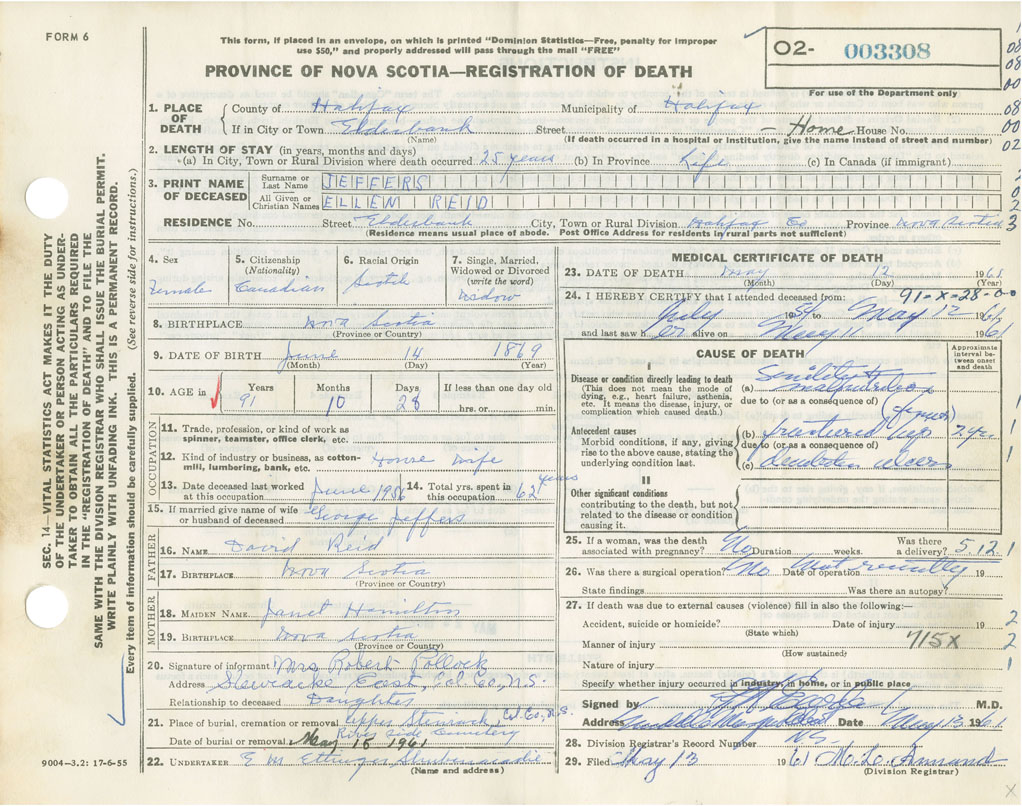 FORM 6
This form, if placed in an envelope, on which is printed "Dominion Statistics—Free, penalty for improper
use $50," and properly addressed will pass through the mail "FREE"
PROVINCE OF NOVA SCOTIA—REGISTRATION OF DEATH
O2- 003308
For use of the Department only
1. PLACE OF DEATH County of Halifax Municipality of Halifax
If in City or Town Elderbank Street — Home House No.
(Name) (If death occurred in a hospital or institution, give the name instead of street and number)
2. LENGTH OF STAY (in years, months and days)
(a) In City, Town or Rural Division where death occurred 25 years (b) In Province Life (c) In Canada (if immigrant)
3. PRINT NAME OF DECEASED Surname or Last Name JEFFERS
All Given or Christian Names ELLEN REID
RESIDENCE No. Street Elderbank City, Town or Rural Division Halifax Co Province Nova Scotia
(Residence means usual place of abode. Post Office Address for residents in rural parts not sufficient)
4. Sex Female
5. Citizenship (Nationality) Canadian
6. Racial Origin Scotch
7. Single, Married, Widowed or Divorced (write the word) Widow
8. BIRTHPLACE Nova Scotia
(Province or Country)
9. DATE OF BIRTH June 14 1869
(Month) (Day) (Year)
10. AGE in Years 91 Months 10 Days 28 If less than one day old hrs. or min.
OCCUPATION
11. Trade, profession, or kind of work as
spinner, teamster, office clerk, etc.
12. Kind of industry or business, as cotton-
mill, lumbering, bank, etc. House wife
13. Date deceased last worked at this occupation June 1956 14. Total yrs. spent in this occupation 62 years
15. If married give name of wife
or husband of deceased George Jeffers
FATHER
16. NAME David Reid
17. BIRTHPLACE Nova Scotia
(Province or Country)
MOTHER
18. MAIDEN NAME Janet Hamilton
19. BIRTHPLACE Nova Scotia
(Province or Country)
20. Signature of informant Mrs Robert Pollock
Address Stewiacke East, Col. Co., N.S.
Relationship to deceased Daughter
21. Place of burial, cremation or removal Upper Stewiacke, Col. Co., N.S.
River side Cemetery
Date of burial or removal May 15 1961
22. UNDERTAKER E M Ettinger Shubenacadie
(Name and address)
MEDICAL CERTIFICATE OF DEATH
23. DATE OF DEATH May 12 1961
(Month) (Day) (Year)
91-X-28-0-0
24. I HEREBY CERTIFY that I attended deceased from:
July 1959 to May 12 1961
and last saw her alive on May 11 1961
CAUSE OF DEATH
Approximate interval between onset and death
I
Disease or condition directly leading to death
(This does not mean the mode of
dying, e.g., heart failure, asthenia,
etc. It means the disease, injury, or
complication which caused death.)
(a) Senility malnutrition
due to (or as a consequence of)
(femur)
Antecedent causes
Morbid conditions, if any, giving
rise to the above cause, stating the
underlying condition last.
(b) fractured hip 2 yr.
due to (or as a consequence of)
(c) decubiton ulcers
II
Other significant conditions
contributing to the death, but not
related to the disease or condition
causing it.
25. If a woman, was the death associated with pregnancy? No Duration weeks. Was there a delivery? 5.12.1
26. Was there a surgical operation? No Date of operation Not recently 19
State findings Was there an autopsy?
27. If death was due to external causes (violence) fill in also the following:—
Accident, suicide or homicide? Date of injury 19
(State which)
Manner of injury 715X
(How sustained)
Nature of injury
Specify whether injury occurred in industry, in home, or in public place
Signed by M.D.
Address Middle Musquodoboit Date May 13 1961
NS.
28. Division Registrar's Record Number
29. Filed May 13 1961
(Division Registrar)
SEC. 14—VITAL STATISTICS ACT MAKES IT THE DUTY
OF THE UNDERTAKER OR PERSON ACTING AS UNDER-
TAKER TO OBTAIN ALL THE PARTICULARS REQUIRED
IN THE "REGISTRATION OF DEATH" AND TO FILE THE
SAME WITH THE DIVISION REGISTRAR WHO SHALL ISSUE THE BURIAL PERMIT.
WRITE PLAINLY WITH UNFADING INK. THIS IS A PERMANENT RECORD.
Every item of information should be carefully supplied. (See reverse side for instructions.)
9004-3.2: 17-6-55